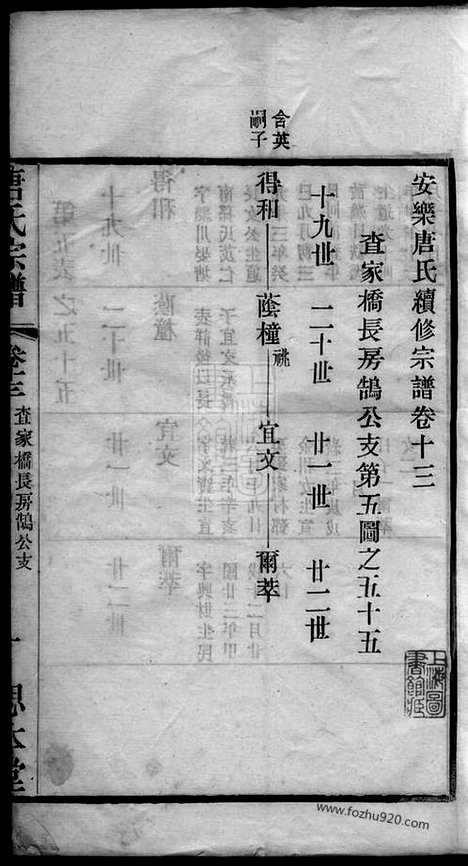 安樂唐氏續修宗譜卷十三
查家橋長房鵠公支第五圖之五十五
十九世 二十世 廿一世 廿二世
含英
嗣子
得和 蔭橦 祧 宜文 爾萃
唐氏宗譜 卷十三 查家橋長房鵠公支 一 思本堂
上海圖書館藏
www.fozhu920.com